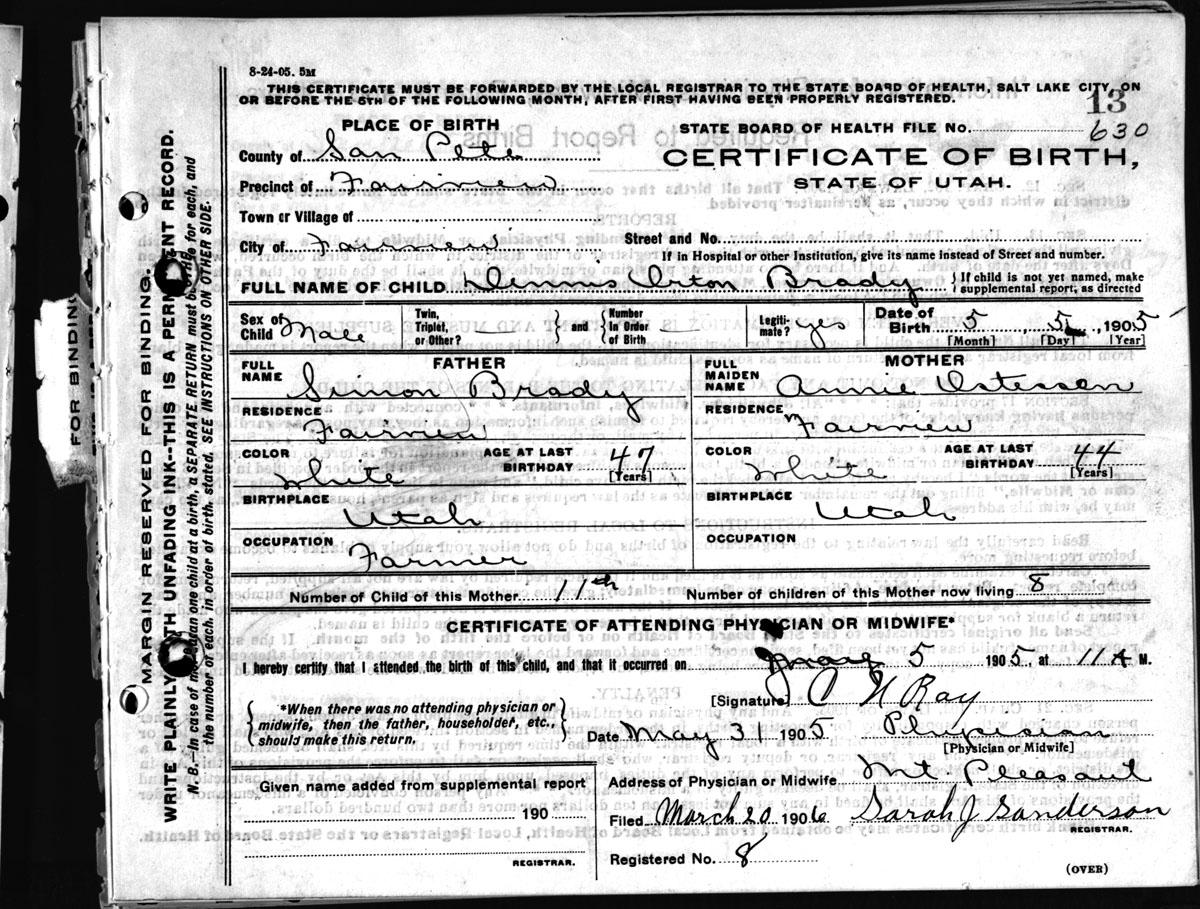 8-24-05. 5M
THIS CERTIFICATE MUST BE FORWARDED BY THE LOCAL REGISTRAR TO THE STATE BOARD OF HEALTH, SALT LAKE CITY, ON
OR BEFORE THE 5TH OF THE FOLLOWING MONTH, AFTER FIRST HAVING BEEN PROPERLY REGISTERED.
13
PLACE OF BIRTH
STATE BOARD OF HEALTH FILE No. 630
County of San Pete
CERTIFICATE OF BIRTH,
Precinct of Fairview
STATE OF UTAH.
Town or Village of
City of Fairview Street and No.
If in Hospital or other Institution, give its name instead of Street and number.
FULL NAME OF CHILD Dennis Orton Brady { If child is not yet named, make supplemental report, as directed
Sex of Child Male Twin, Triplet, or Other? } and { Number In Order of Birth Legiti-mate? yes Date of Birth 5 5, 1905
[Month] [Day] [Year]
FATHER
MOTHER
FULL NAME Simon Brady
FULL MAIDEN NAME Annie
RESIDENCE Fairview
RESIDENCE Fairview
COLOR White AGE AT LAST BIRTHDAY 47 [Years]
COLOR White AGE AT LAST BIRTHDAY 44 [Years]
BIRTHPLACE Utah
BIRTHPLACE Utah
OCCUPATION Farmer
OCCUPATION
Number of Child of this Mother 11th Number of children of this Mother now living 8
CERTIFICATE OF ATTENDING PHYSICIAN OR MIDWIFE*
I hereby certify that I attended the birth of this child, and that it occurred on May 5 1905, at 11 A M.
{ *When there was no attending physician or midwife, then the father, householder, etc., should make this return. }
[Signature] C N Ray
Date May 31 1905 Physician
[Physician or Midwife]
Given name added from supplemental report
190
REGISTRAR.
Address of Physician or Midwife Mt Pleasant
Filed March 20 1906 Sarah J Sanderson
REGISTRAR.
Registered No. 8
(OVER)
MARGIN RESERVED FOR BINDING.
WRITE PLAINLY WITH UNFADING INK--THIS IS A PERMANENT RECORD.
N. B.—In case of more than one child at a birth, a SEPARATE RETURN must be made for each, and
the number of each, in order of birth, stated. SEE INSTRUCTIONS ON OTHER SIDE.
FOR BINDING